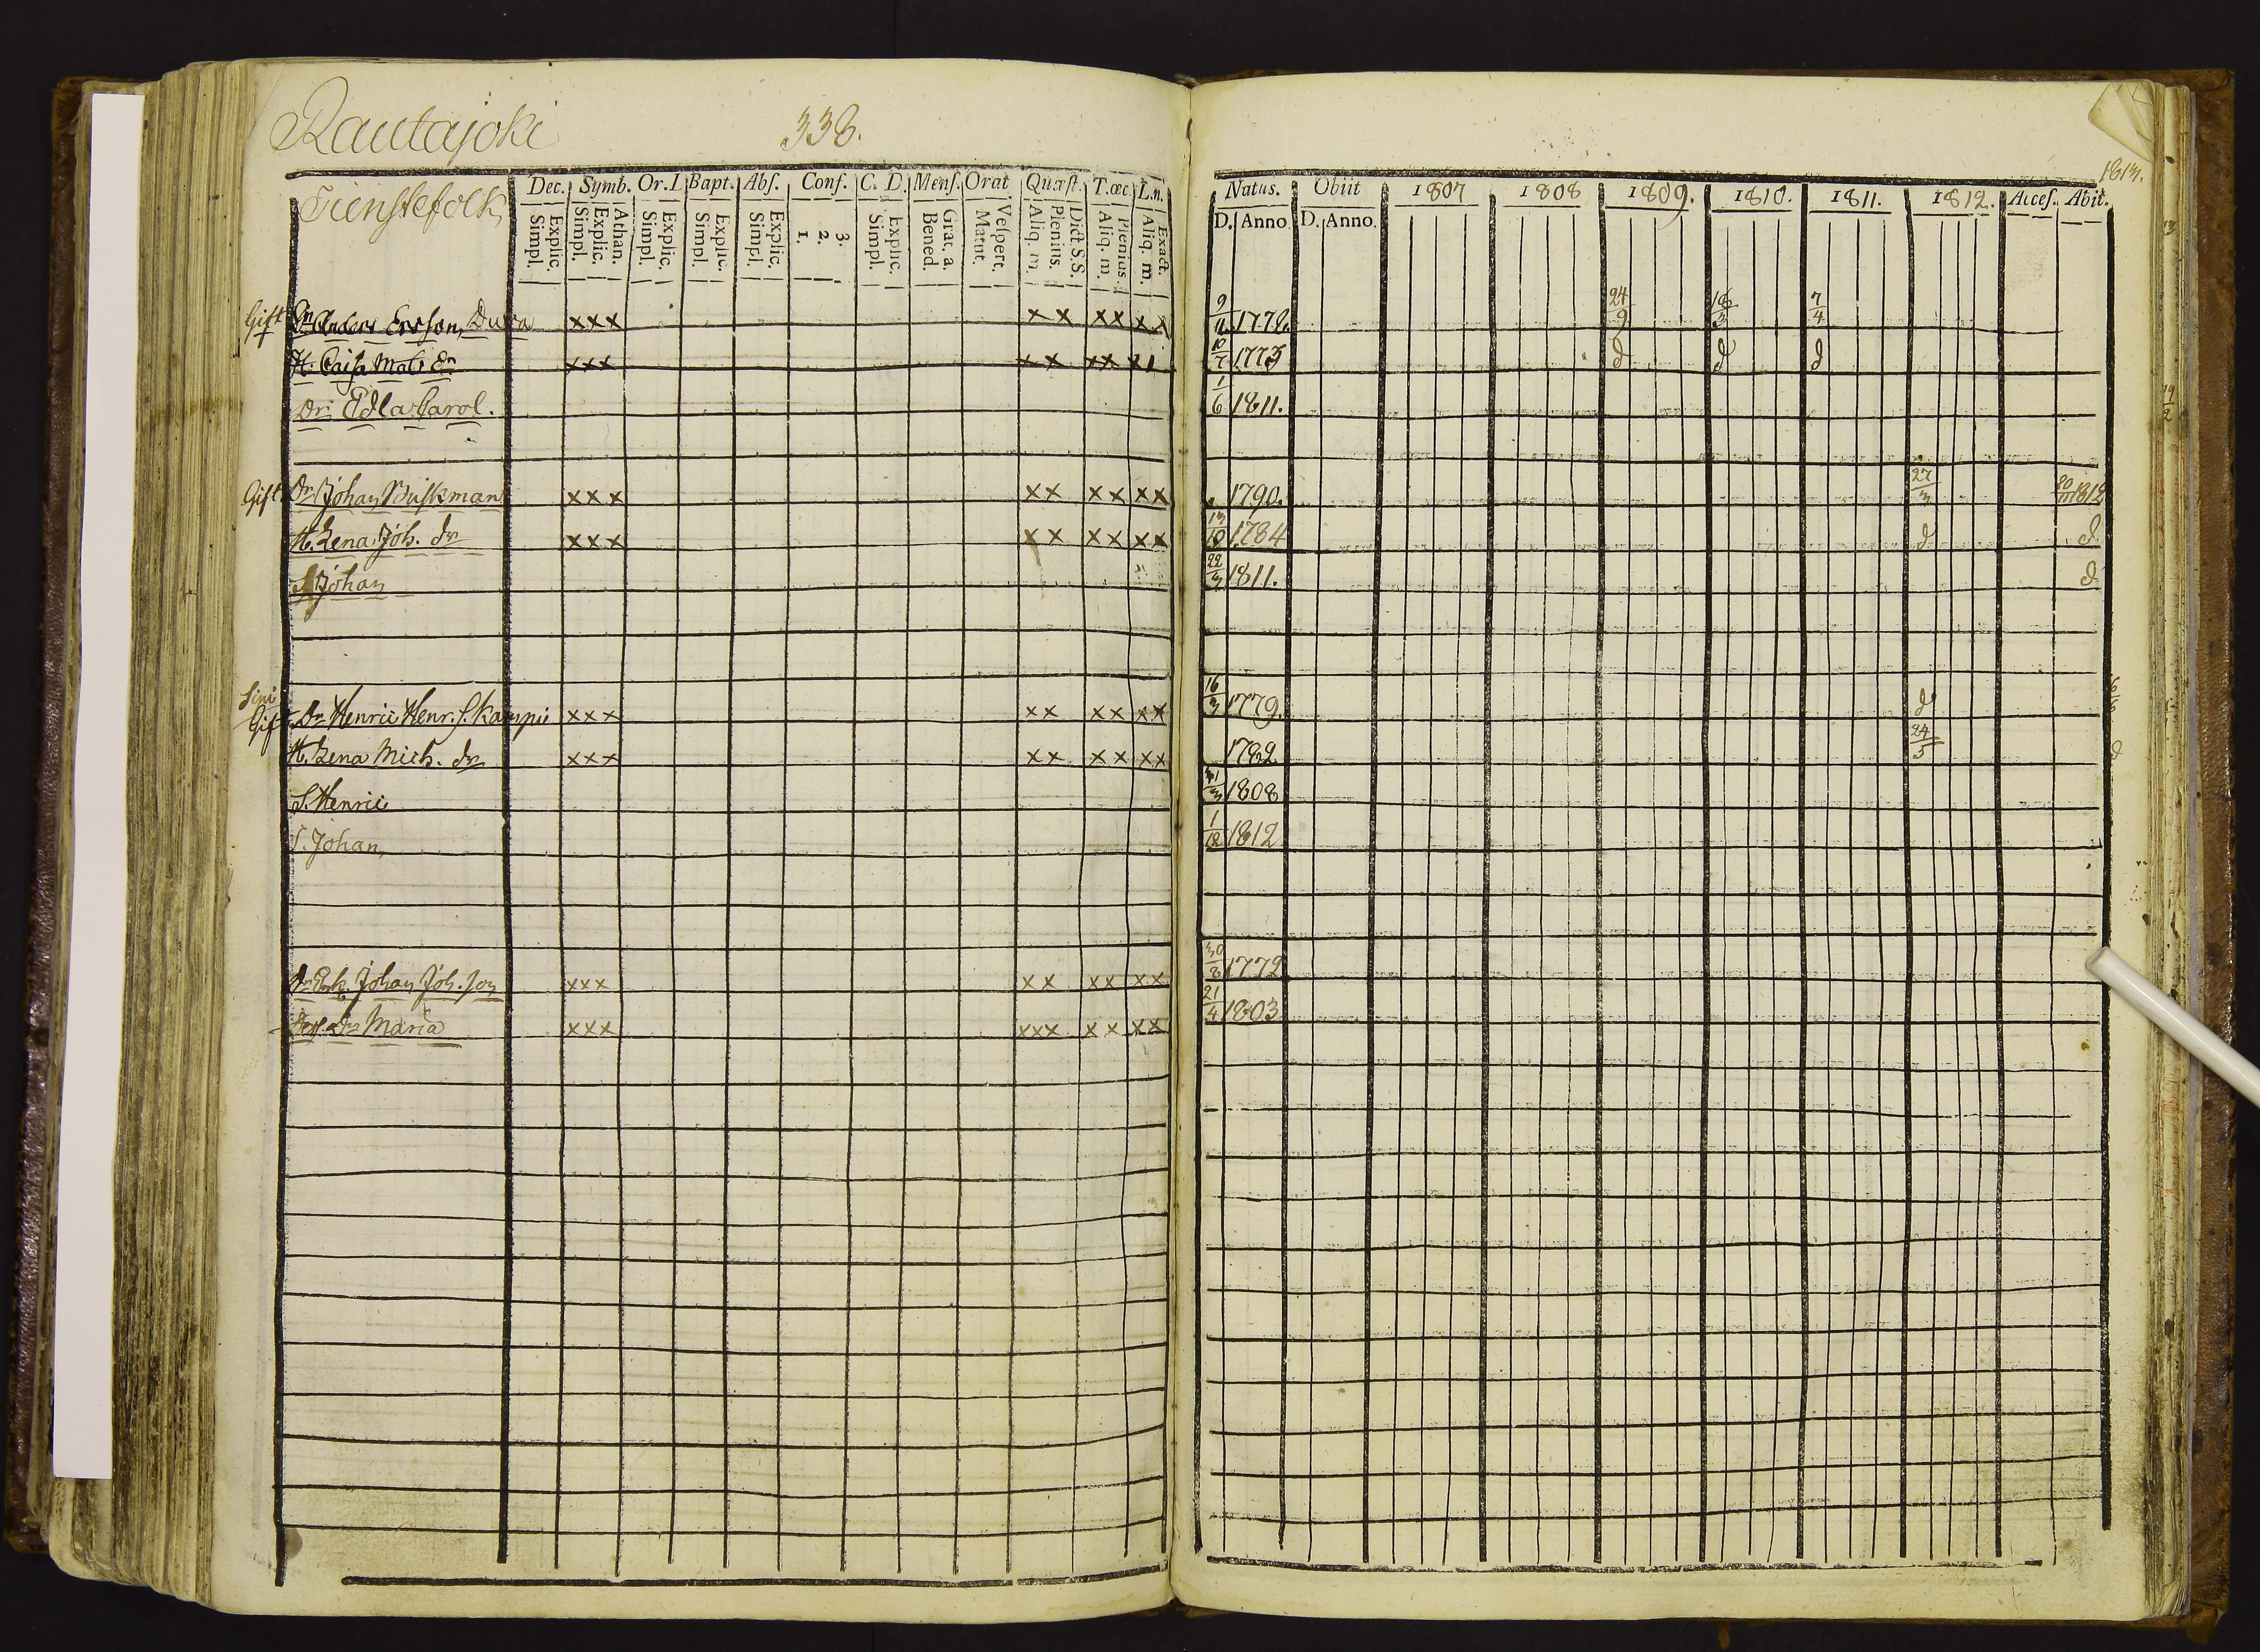 Rautajoki 338.
1813.
Tienstefolk
Dec. Symb. Or. Bapt. Abs. Conf. C. D. Mens. Orat Quæst. T. œc. L.n.
Simpl. Explic. Simpl. Explic. Athan. Simpl. Explic. Simpl. Explic. Simpl. Explic. 1. 2. 3. Simpl. Explic. Bened. Grat. a. Matut. Vespert. Aliq. m. Plenius. Dict. S.S. Aliq. m. Plenius. Aliq. m. Exact.
Natus. Obiit 1807 1808 1809. 1810. 1811. 1812. Acces. Abit.
D. Anno D. Anno.
Gift Dr. Anders Ersson, xxx xx xx xx 9/11 1772. 24/9 7/4
H. Caisa Mats Dr xxx xx xx 10/7 1773 d d d
Dr. Edla Carol. 1/6 1811.
Gift Dr Johan Buskman xxx xx xx xx 1790. 27/3 1812
H. Lena Joh. dr xxx xx xx xx 13/10 1784 d d
S. Johan 22/3 1811. d
Gift Dr. Henric Henr. S. Kamppi xxx xx xx xx 16/3 1779. d
H. Lena Mich. dr xxx xx xx xx 1782. 24/5 d
S. Henric 1808
S. Johan, 1/12 1812
Johan Joh. son xxx xx xx xx 30/8 1772
dr Maria xxx xxx xx xx 21/4 1803